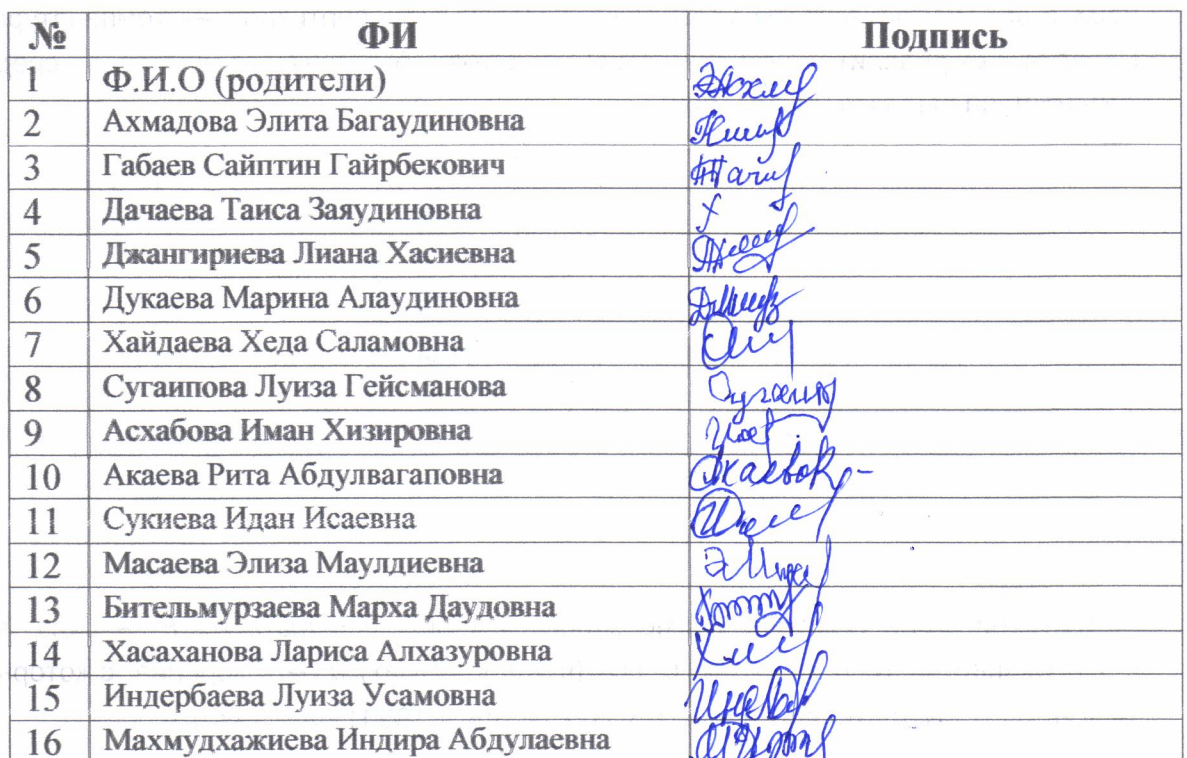 № ФИ Подпись
1 Ф.И.О (родители)
2 Ахмадова Элита Багаудиновна
3 Габаев Сайптин Гайрбекович
4 Дачаева Таиса Заяудиновна
5 Джангириева Лиана Хасиевна
6 Дукаева Марина Алаудиновна
7 Хайдаева Хеда Саламовна
8 Сугаипова Луиза Гейсманова
9 Асхабова Иман Хизировна
10 Акаева Рита Абдулвагаповна
11 Сукиева Идан Исаевна
12 Масаева Элиза Маулдиевна
13 Бительмурзаева Марха Даудовна
14 Хасаханова Лариса Алхазуровна
15 Индербаева Луиза Усамовна
16 Махмудхажиева Индира Абдулаевна